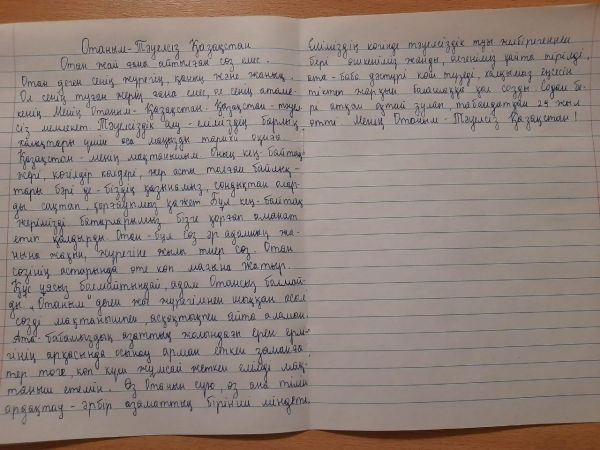 Отаным-Тәуелсіз Қазақстан
Отан жай ғана айтылған сөз емес.
Отан деген сенің жүрегің, қаның және жаның.
Ол сенің туған жерің ғана емес, ол сенің атаме-
кенің. Менің Отаным-Қазақстан. Қазақстан-тәуел-
сіз мемлекет. Тәуелсіздік алу-еліміздің барлық
халықтары үшін аса маңызды тарихи оқиға.
Қазақстан-менің мақтанышым. Оның кең-байтақ
жері, көгілдір көлдері, жер асты толған байлық-
тары бәрі де-біздің қазынамыз, сондықтан олар-
ды сақтап, қорғауымыз қажет. Бұл кең-байтақ
жерімізді батырларымыз бізге қорғап аманат
етіп қалдырды. Отан-бұл сөз әр адамның жа-
нына жақын, жүрегіне жылы тиер сөз. Отан
сөзінің астарында өте көп мағына жатыр.
Құс ұясыз болмайтындай, адам Отансыз болмай-
ды. „Отаным" деген жас жүрегімнен шыққан асыл
сөзді мақтанышпен, асқақтықпен айта аламын.
Ата-бабамыздың азаттық жолындағы ерен ерлі-
гінің арқасында осынау арман еткен заманға,
тер төге, көп күш жұмсай жеткен елімді мақ-
таныш етемін. Өз Отанын сүю, өз ана тілін
ардақтау-әрбір азаматтың бірінші міндеті.
Еліміздің көгінде тәуелсіздік туы желбірегеннен
бері өшкеніміз жанды, өлгеніміз қайта тірілді,
ата-баба дәстүрі қайта түледі, халқымыз еңсесін
тіктеп жарқын болашаққа қол созды. Содан бе-
рі атқан оқтай зулап, табандатқан 29 жыл
өтті. Менің Отаным-Тәуелсіз Қазақстан!